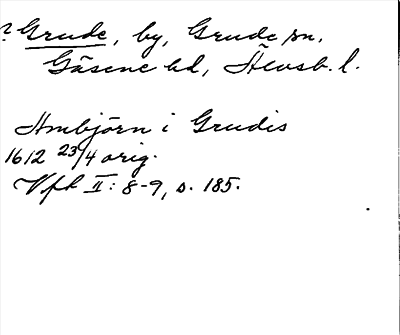 ? Grude, by, Grude sn,
Gäsene hd, Älvsb. l.
Ambjörn i Grudis
1612 23/4 orig.
Vfl II: 8-9, s. 185.